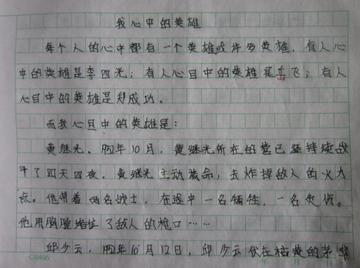 我心中的英雄
每个人的心中都有一个英雄或许多英雄，有人心
中的英雄是李四光；有人心目中的英雄是岳飞；有人
心目中的英雄是郑成功。
而我心目中的英雄是：
黄继光。52年10月，黄继光所在的营已坚持战
斗了四天四夜，黄继光主动请命，去炸掉敌人的火力
点。他带着两名战士，在途中一名牺牲，一名负伤。
他用胸膛堵住了敌人的枪口……
邱少云，52年10月12日，邱少云伏在枯黄的茅